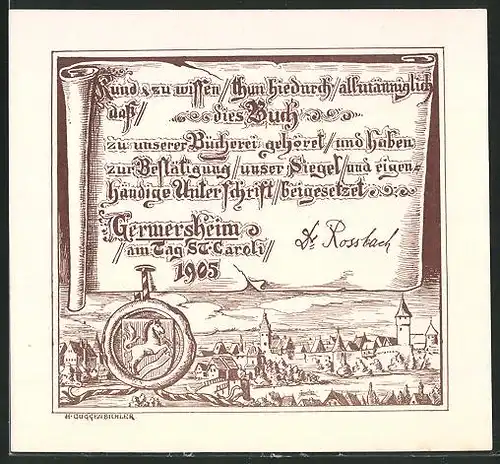 Kund & zu wissen / thun hiedurch / allmänniglich
daß / dies Buch
zu unserer Bücherei gehöret / und haben
zur Bestätigung / unser Siegel / und eigen-
händige Unterschrift / beigesetzet
Germersheim
/ am Tag St. Caroli /
1905
Dr Rossbach
H. GUGGENBICHLER